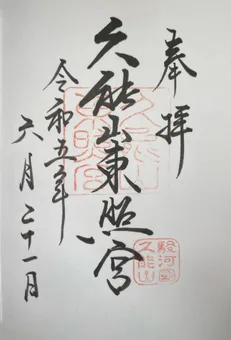 奉拝
久能山東照宮
令和五年
六月二十一日
駿河国
久能山